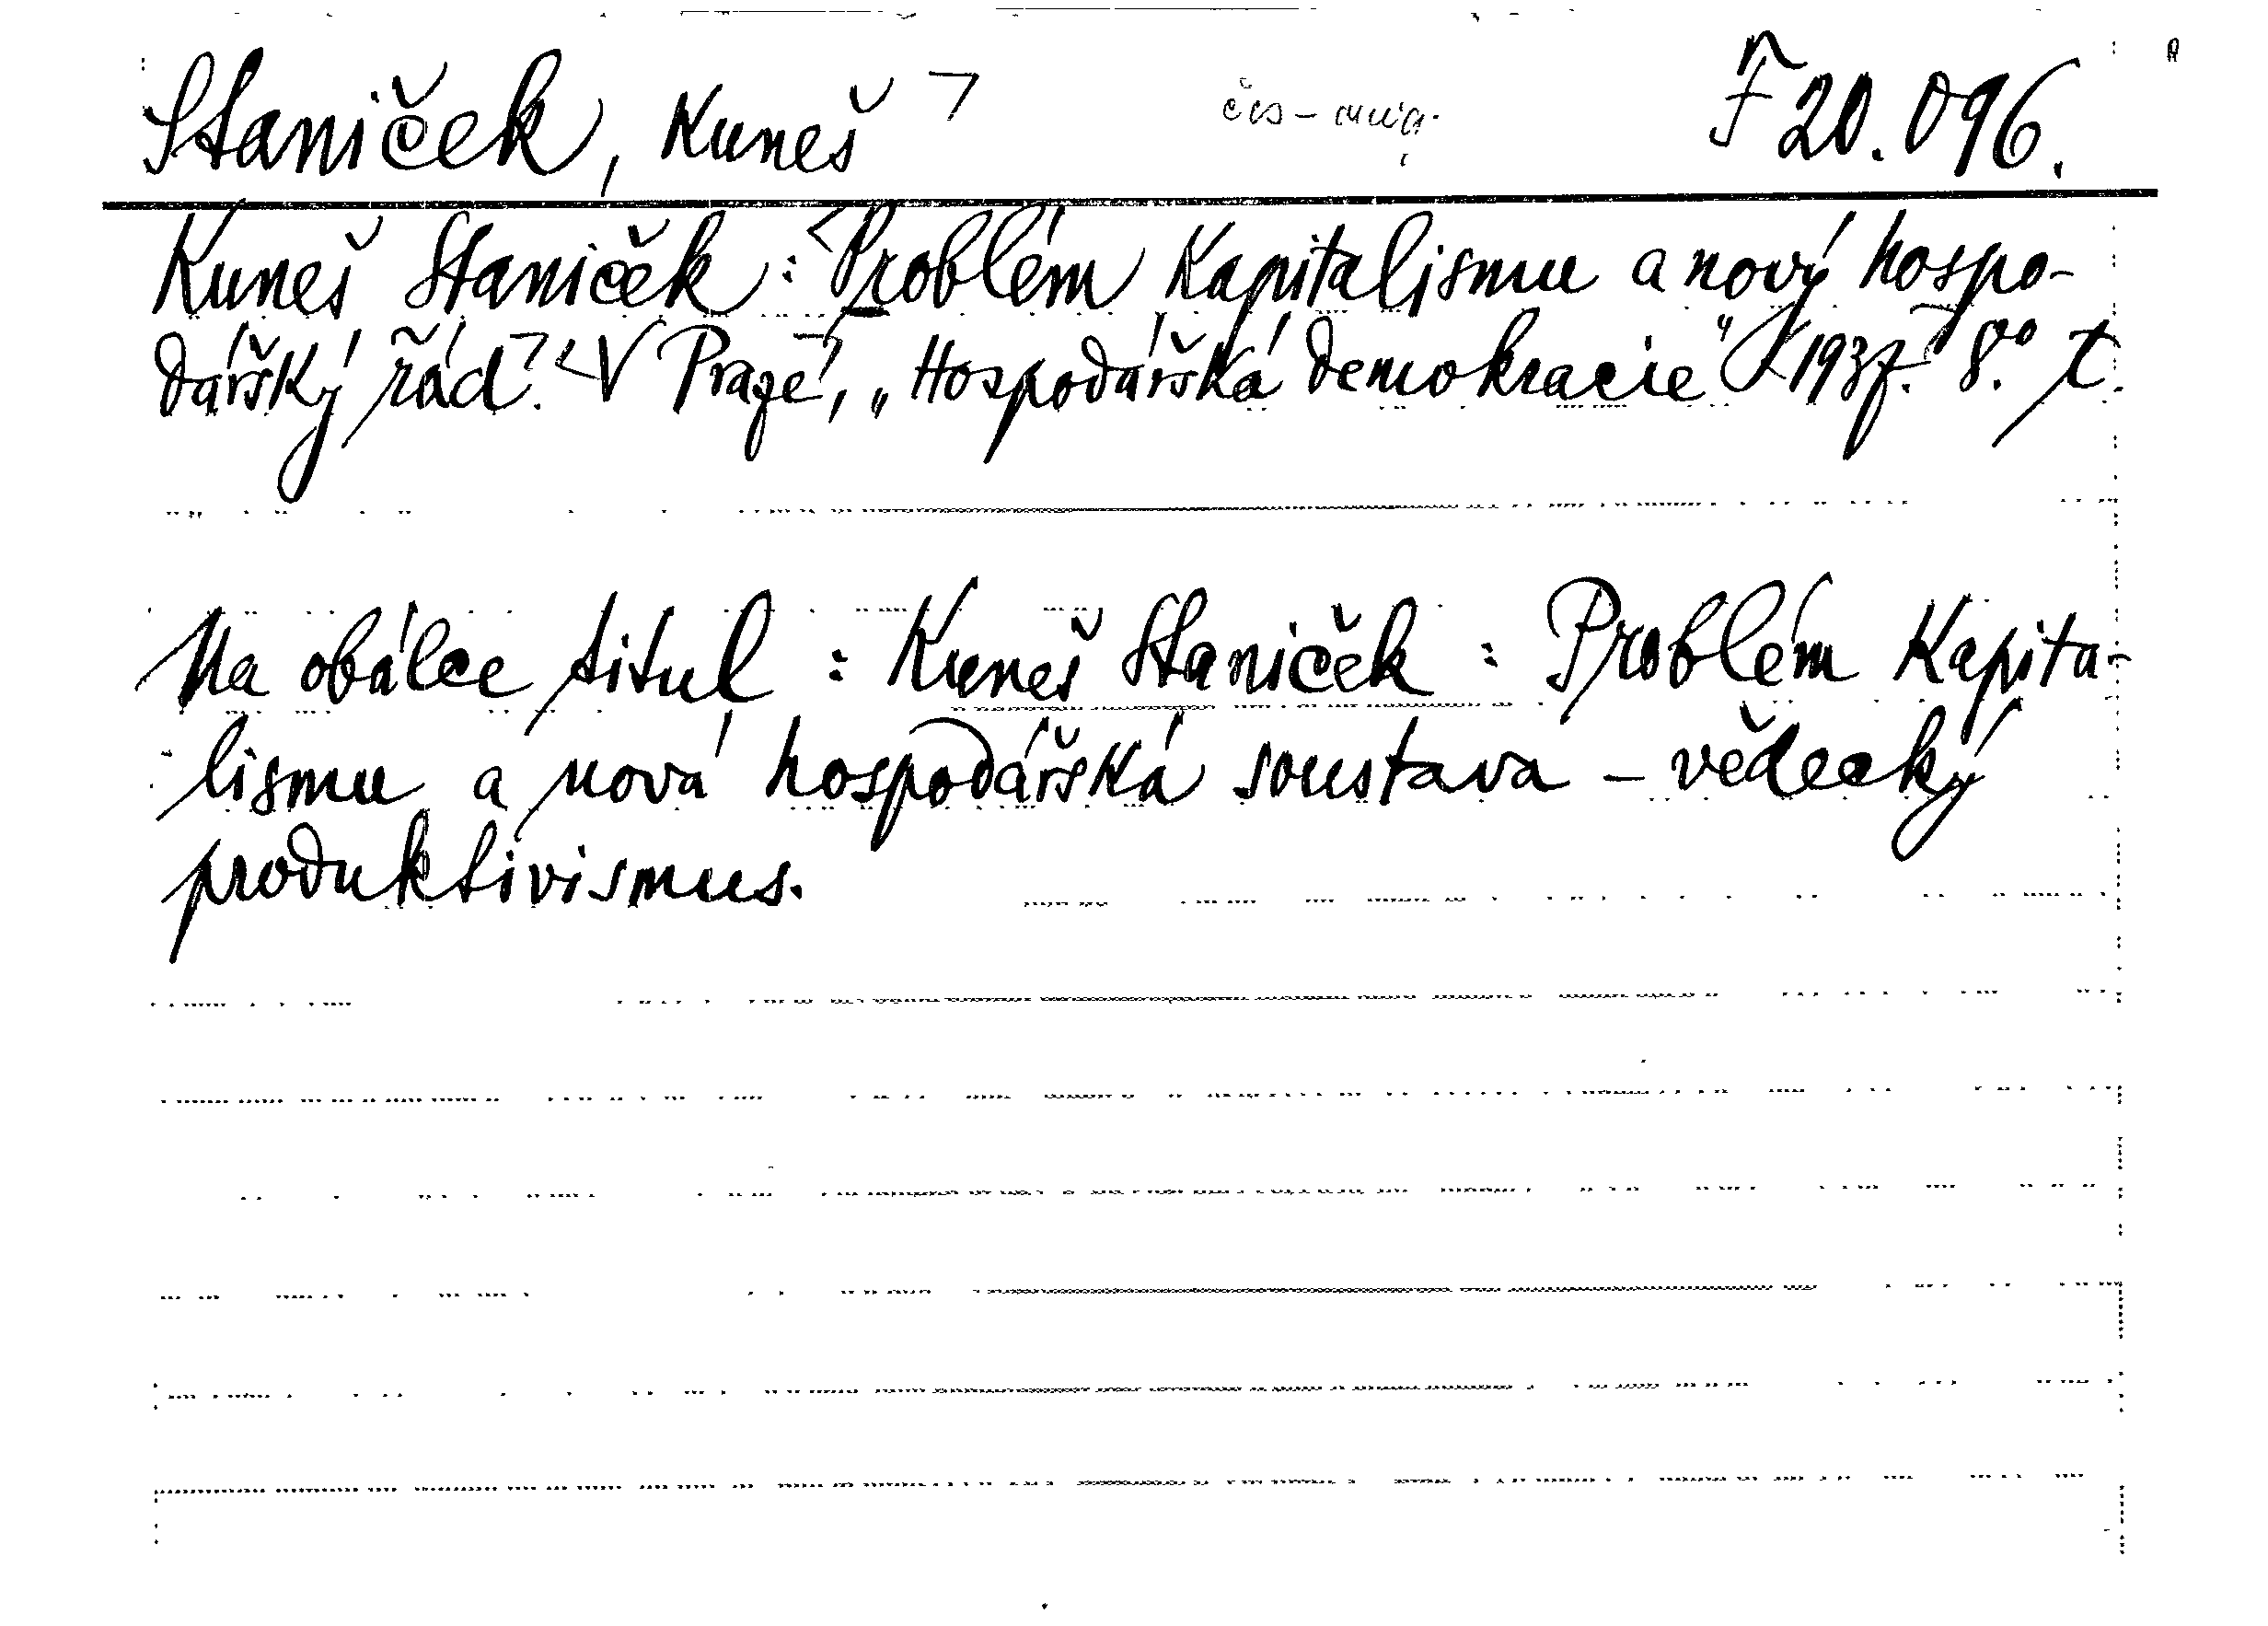 Staniček, Kuneš F 20.096.
Kuneš Staniček: Problém kapitalismu a nový hospo-
dářský řád. V Praze, „Hospodářská demokracie" 1937. 8.° t.
Na obálce titul : Kuneš Staniček : Problém kapita-
lismu a nová hospodářská soustava – vědecký
produktivismus.